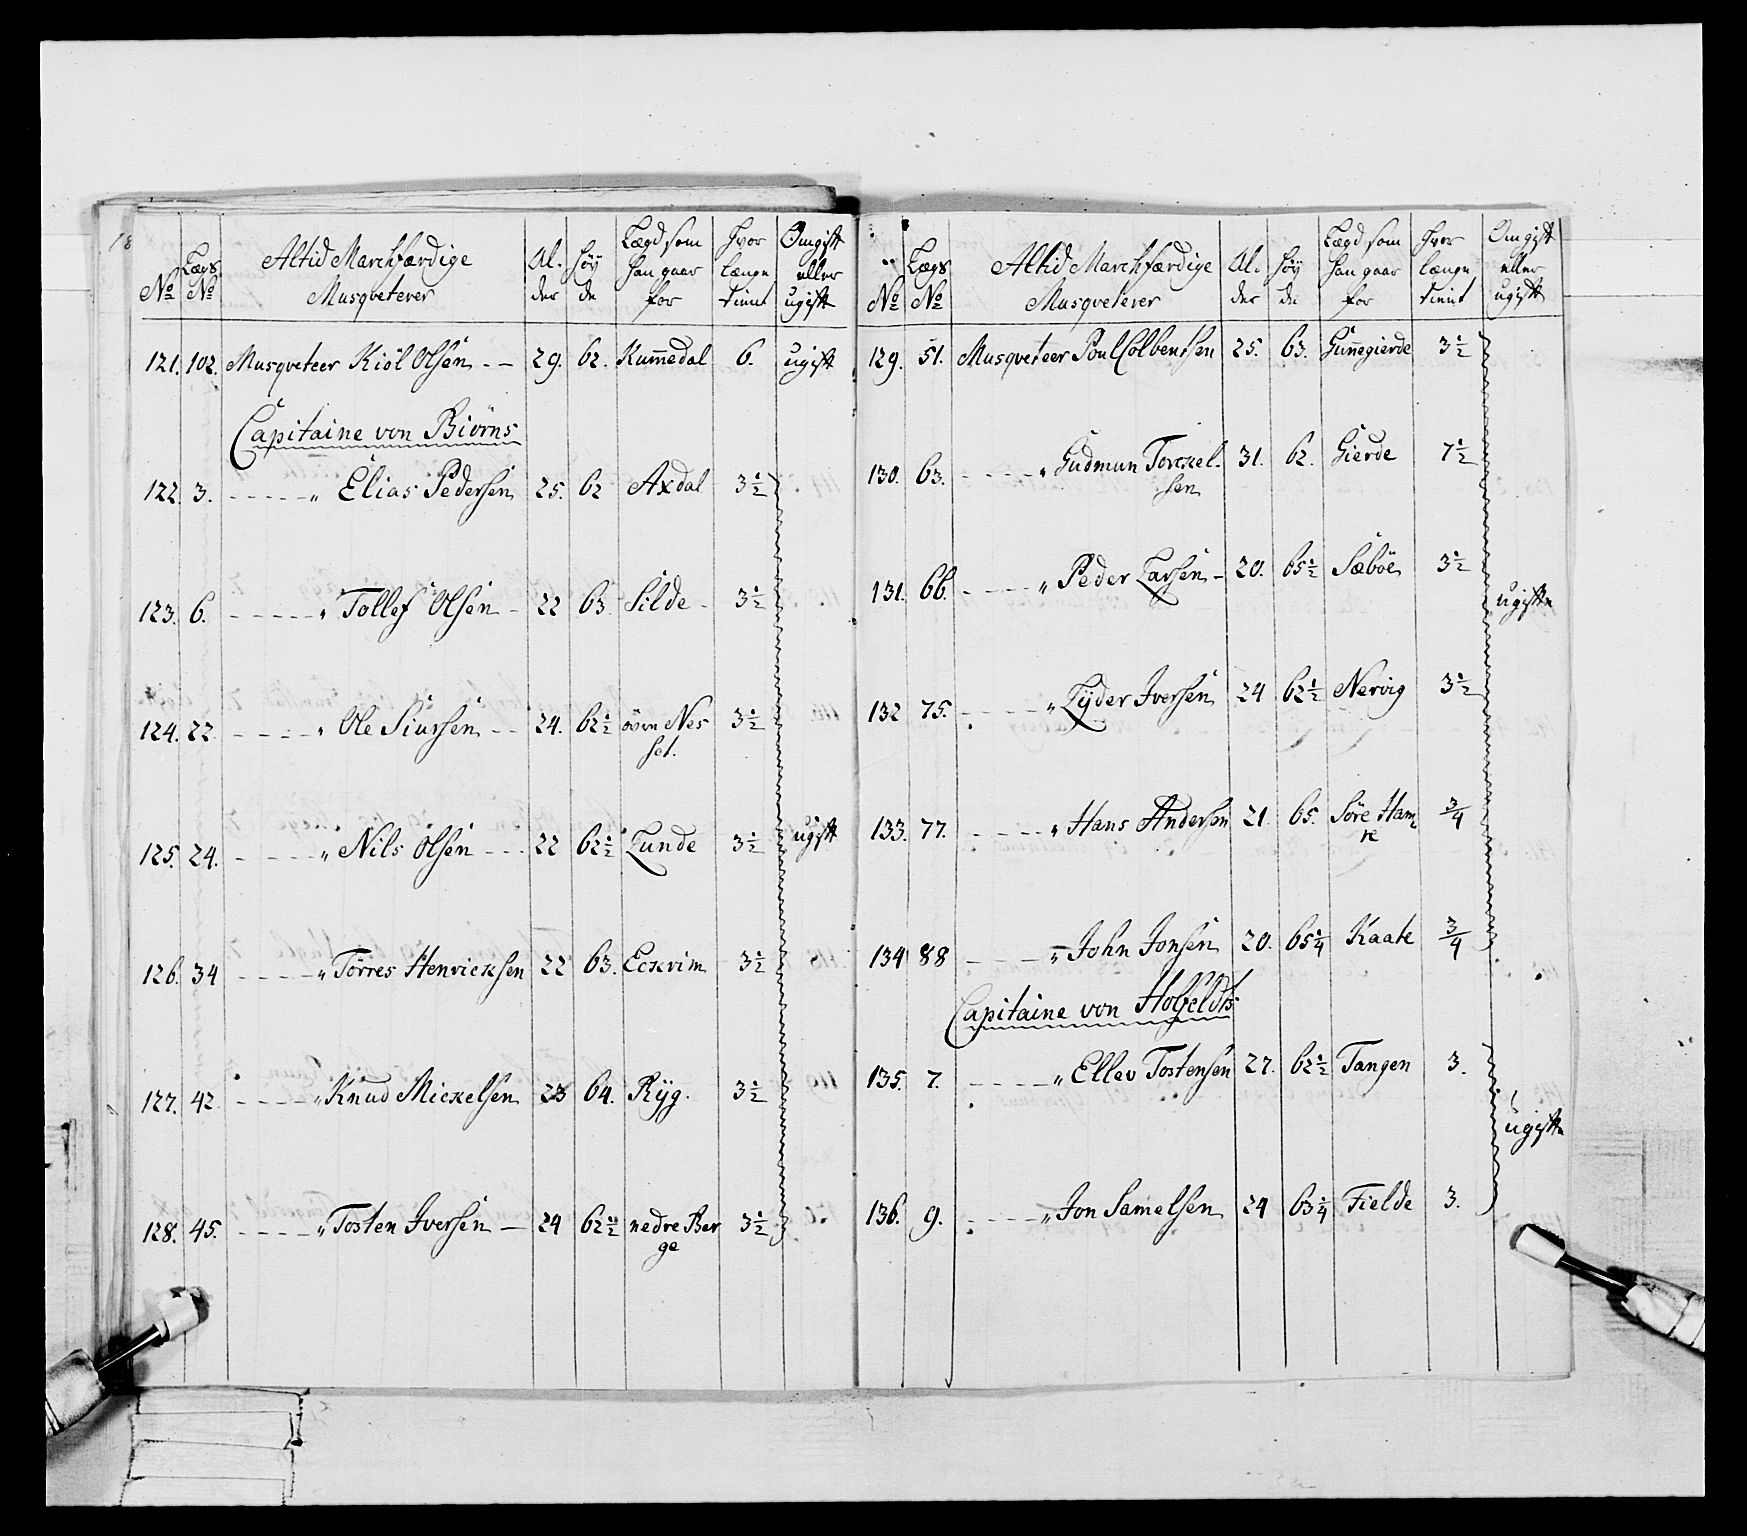 No
Lægs No
Altid Marchfærdige Musqveterer
Al. der
Høy de
Lægd som han gaar for
Hvor længe tient
Om gift eller ugift
121. 102. Musqveteer Kiöl Olsen - - 29. 62. Kumedal 6. ugift
Capitaine von Biörns
122. 3. - - - - - " Elias Pedersen 25. 62 Axdal 3 1/2
123. 6. - - - - - " Tollef Olsen - 22 63 Silde - 3 1/2
124. 22 - - - - " Ole Siursen - - 24. 62 1/2 övre Nes 3 1/2
set.
125. 24. - - - - " Nils Olsen - - - 22 62 1/2 Lunde 3 1/2 ugift
126. 34 - - - - " Torres Henricksen 22 63. Eckrim 3 1/2
127. 42 - - - - " Knud Mickelsen 23 64. Ryg. 3 1/2
128. 45. - - - - " Tosten Iversen - 24 62 1/2 nedre Ber 3 1/2
ge
No
Lægs No
Altid Marchfærdige Musqveterer
Al. der
Høy de
Lægd som han gaar for
Hvor længe tient
Om gift eller ugift
129. 51. Musqveteer Poul Colbensen 25. 63. Gunegierde 3 1/2
130. 63. - - - - - " Gudmun Torckel- 31. 62. Gierde 7 1/2
sen
131. 66. - - - - - " Peder Larsen - 20. 65 1/2 Sæböe 3 1/2
ugifte
132 75. - - - - - " Lyder Iversen 24 62 1/2 Nervig 3 1/2
133. 77. - - - - " Hans Andersen 21 65. Söre Ham 3/4
re
134 88 - - - - " John Jonsen 20. 65 1/4 Kaate 3/4
Capitaine von Holfeldts
135. 7. - - - - - " Ellev Tostensen 27. 62 1/2 Tangen 3.
ugifte
136. 9. - - - - - " Jon Samelsen 24 63 1/4 Fielde 3.